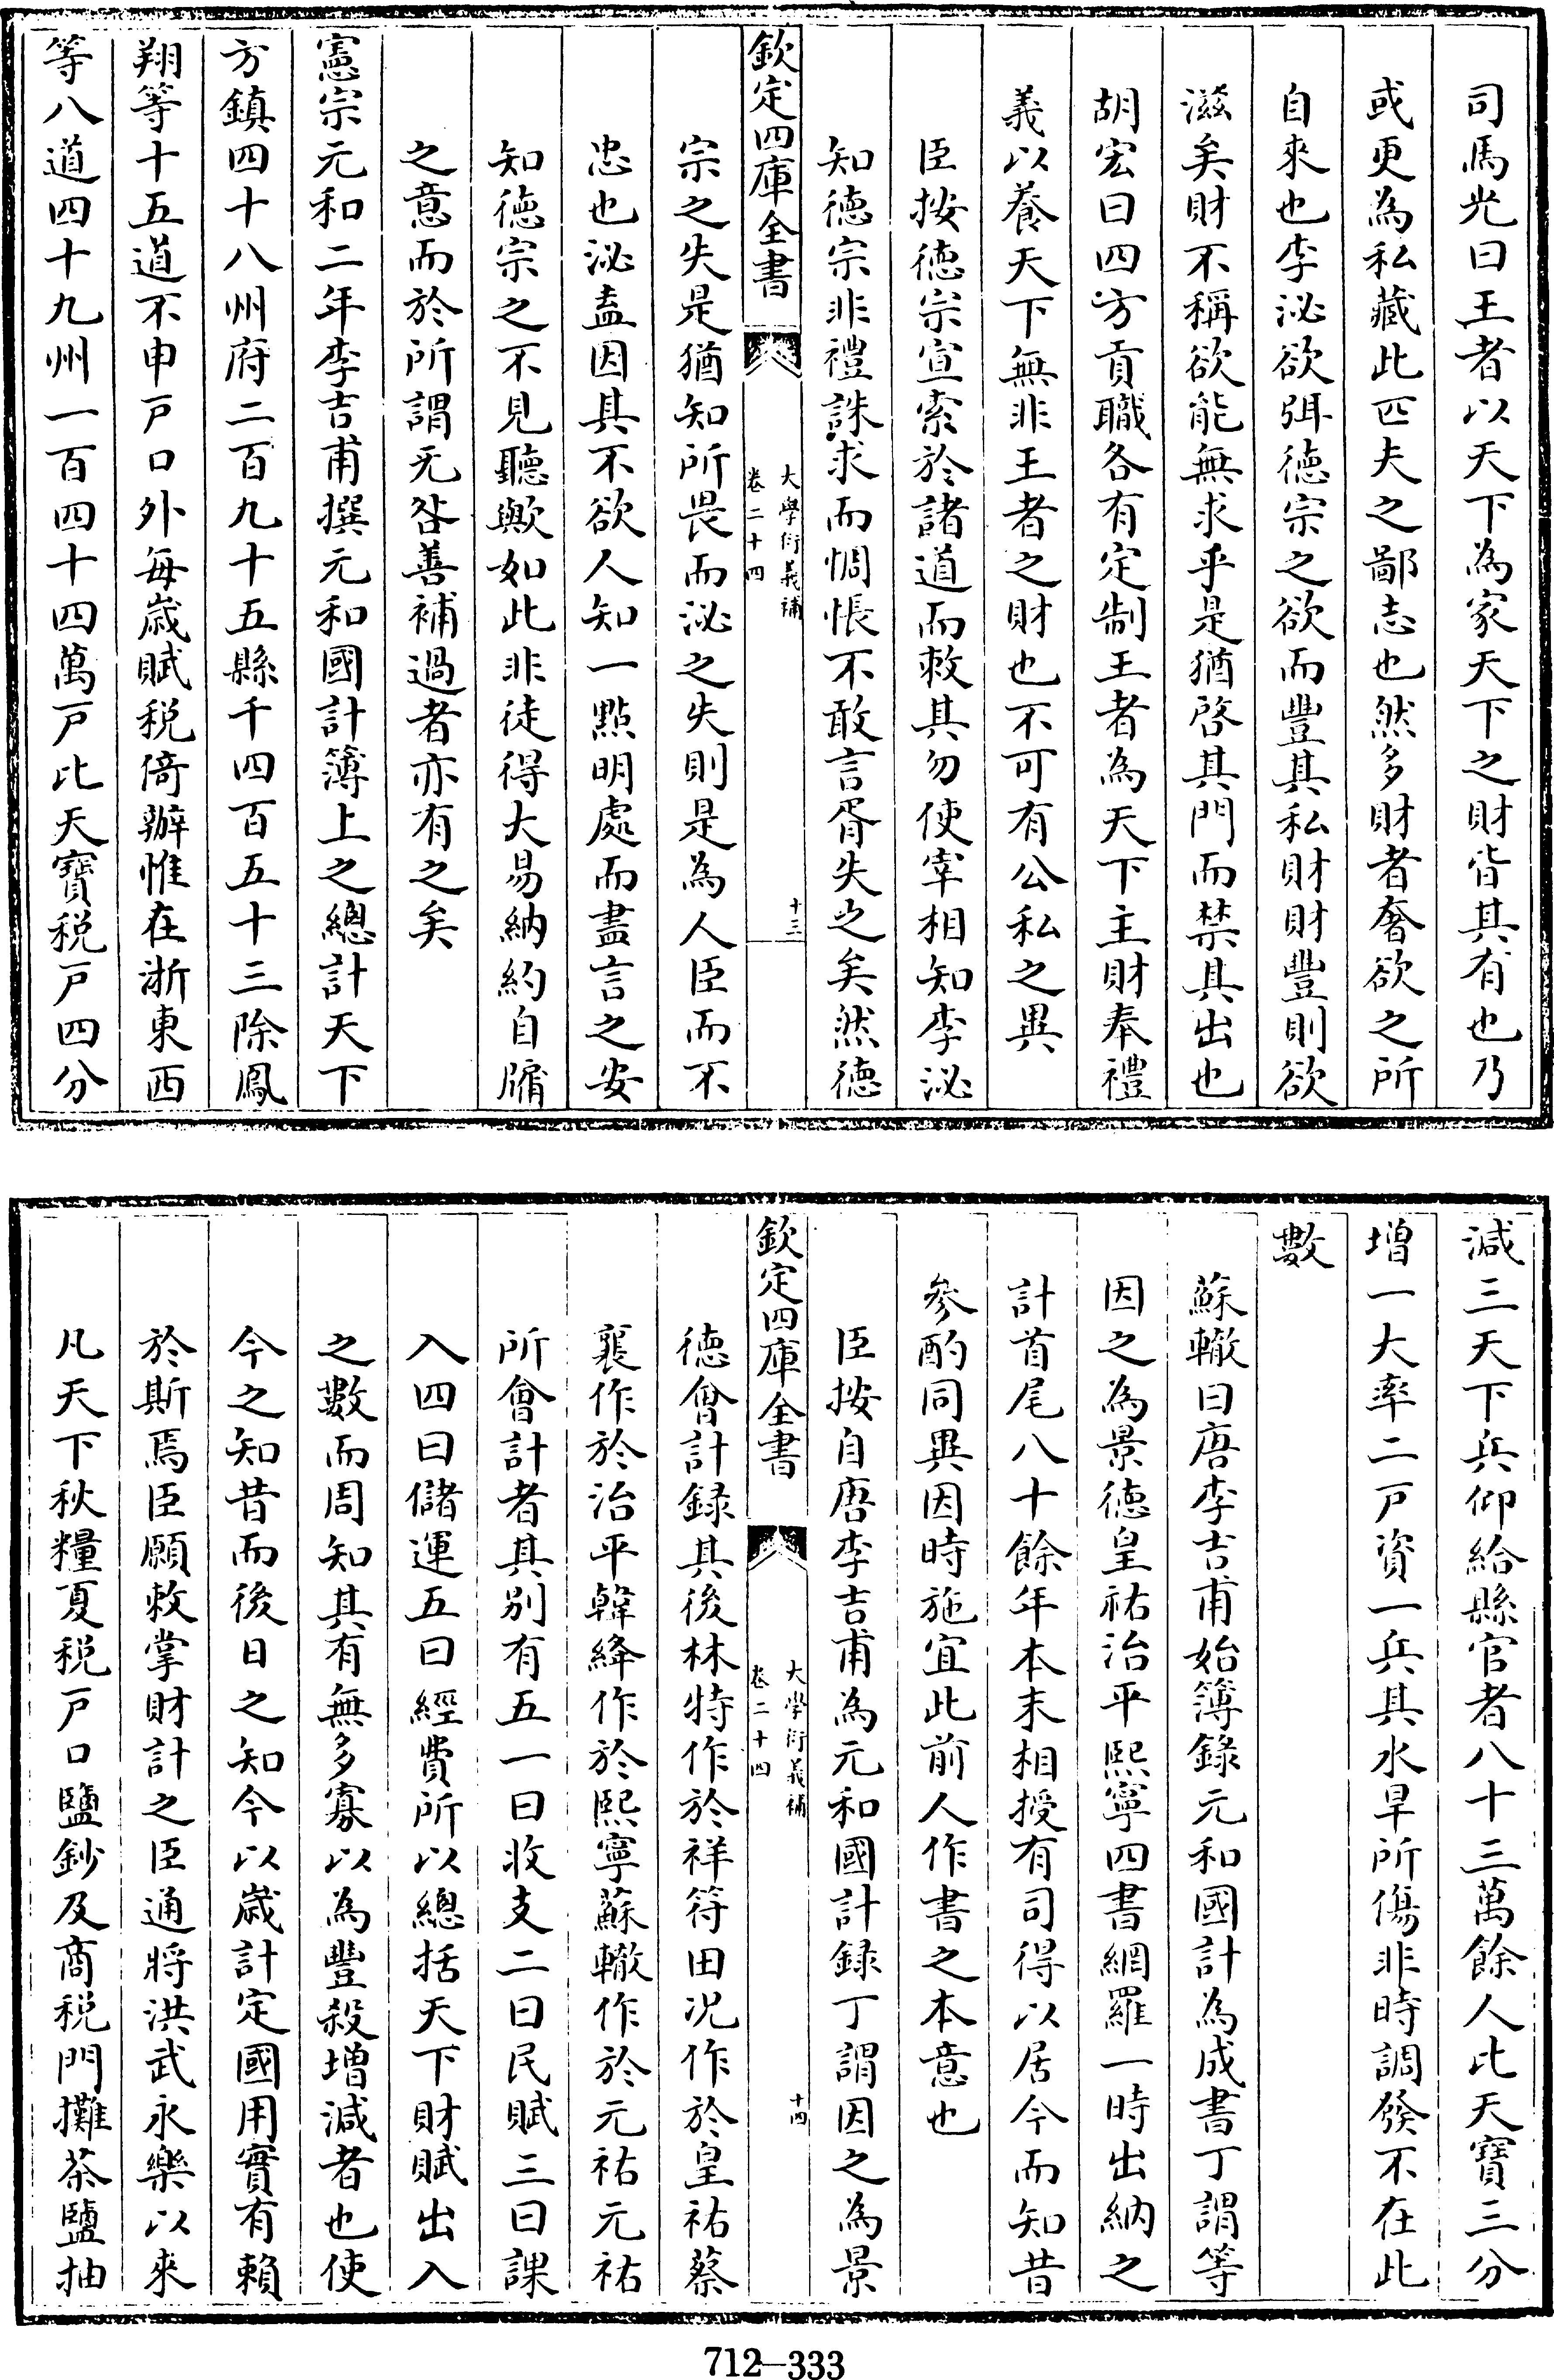 司馬光曰王者以天下為家天下之財皆其有也乃
或更為私藏此匹夫之鄙志也然多財者奢欲之所
自來也李泌欲弭德宗之欲而豐其私財財豐則欲
滋矣財不稱欲能無求乎是猶啓其門而禁其出也
胡宏曰四方貢職各有定制王者為天下主財奉禮
義以養天下無非王者之財也不可有公私之異
臣按德宗宣索於諸道而敕其勿使宰相知李泌
知德宗非禮誅求而惆悵不敢言胥失之矣然德
欽定四庫全書
大學衍義補
卷二十四
十三
宗之失是猶知所畏而泌之失則是為人臣而不
忠也泌盍因其不欲人知一點明處而盡言之安
知德宗之不見聽歟如此非徒得大易納約自牖
之意而於所謂无咎善補過者亦有之矣
憲宗元和二年李吉甫撰元和國計簿上之總計天下
方鎮四十八州府二百九十五縣千四百五十三除鳳
翔等十五道不申戸口外每歲賦稅倚辦惟在浙東西
等八道四十九州一百四十四萬戸比天寶稅戸四分
減三天下兵仰給縣官者八十三萬餘人比天寶三分
增一大率二戸資一兵其水旱所傷非時調發不在此
數
蘇轍曰唐李吉甫始簿錄元和國計為成書丁謂等
因之為景德皇祐治平熙寧四書網羅一時出納之
計首尾八十餘年本末相授有司得以居今而知昔
參酌同異因時施宜此前人作書之本意也
臣按自唐李吉甫為元和國計録丁謂因之為景
欽定四庫全書
大學衍義補
卷二十四
十四
德會計録其後林特作於祥符田况作於皇祐蔡
襄作於治平韓絳作於熙寧蘇轍作於元祐元祐
所會計者其别有五一曰收支二曰民賦三曰課
入四曰儲運五曰經費所以總括天下財賦出入
之數而周知其有無多寡以為豐殺增減者也使
今之知昔而後日之知今以歲計定國用實有賴
於斯焉臣願敕掌財計之臣通將洪武永樂以來
凡天下秋糧夏稅戸口鹽鈔及商稅門攤茶鹽抽
712—333